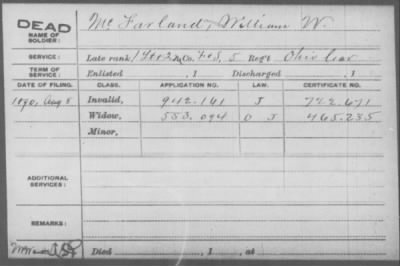 DEAD
NAME OF SOLDIER:
McFarland, William W.
SERVICE:
Late rank, Co. 5 Reg't Ohio Cav
TERM OF SERVICE:
Enlisted , 1 Discharged , 1
DATE OF FILING. CLASS. APPLICATION NO. LAW. CERTIFICATE NO.
1890, Aug 8 Invalid, 942.161 J 722.671
Widow, 553.094 O J 465.235
Minor,
ADDITIONAL SERVICES:
REMARKS:
Died , 1 , at